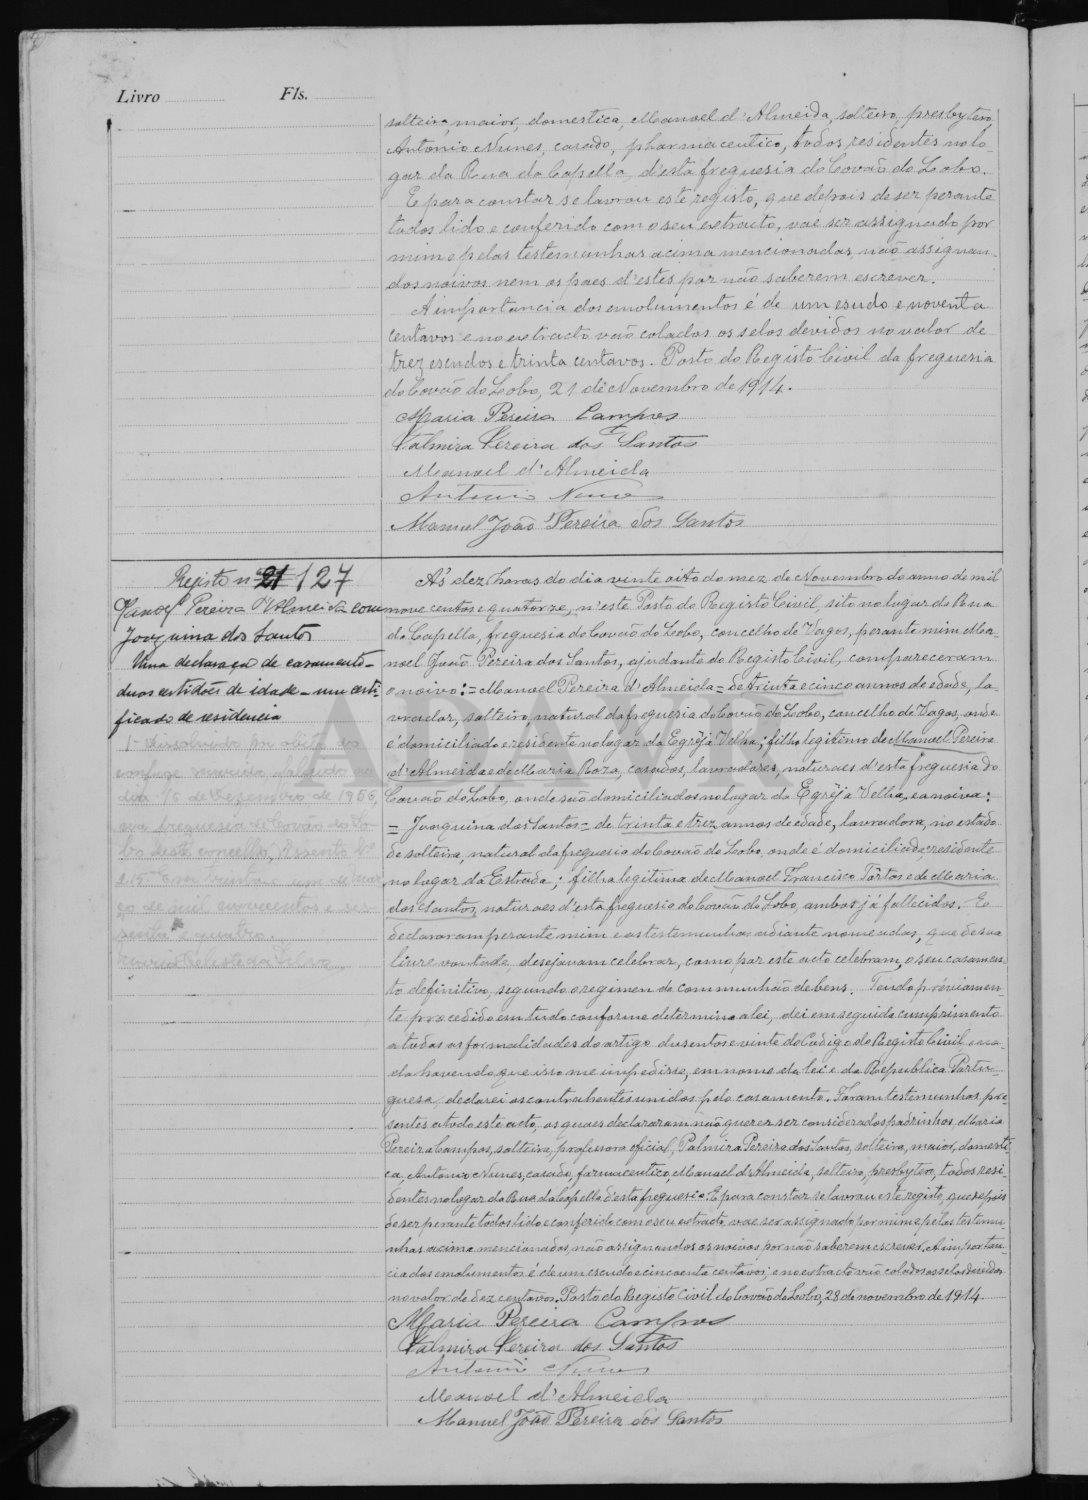 Livro
Fls.
solteira, maior, domestica, Manoel d'Almeida, solteiro, presbytero,
Antonio Nunes, casado, pharmaceutico, todos residentes no lo-
gar da Rua da Capella, d'esta freguesia do Covão do Lobo.
E para constar se lavrou este registo, que depois de ser perante
todos lido e conferido com o seu extracto, vae ser assignado por
mim e pelas testemunhas acima mencionadas, não assignan-
do os noivos nem os paes d'estes por não saberem escrever.
A importancia dos emolumentos é de um escudo e noventa
centavos e no extracto vão colados os selos devidos no valor de
trez escudos e trinta centavos. Posto do Registo Civil da freguesia
do Covão do Lobo, 21 de Novembro de 1914.
Maria Pereira Campos
Palmira Pereira dos Santos
Manoel d'Almeida
Antonio Nunes
Manuel João Pereira dos Santos
Registo nº 21 127
Manoel Pereira d'Almeida com
Joaquina dos Santos
Uma declaração de casamento -
duas certidões de idade - um certi-
ficado de residencia
1- Dissolvido por obito do
conjuge marido, falecido no
dia de Dezembro de 1956,
na freguesia de Covão do Lo-
bo deste concelho, Assento Nº
215 trinta e um de Mar-
ço de mil novecentos e ses-
senta e quatro.
da Silva
Ás dez horas do dia vinte oito do mez de Novembro do anno de mil
nove centos e quatorze, n'este Posto do Registo Civil, sito no lugar da Rua
da Capella, freguesia do Covão do Lobo, concelho de Vagos, perante mim Ma-
noel João Pereira dos Santos, ajudante do Registo Civil, compareceram
o noivo: = Manoel Pereira d'Almeida = de trinta e cinco annos de edade, la-
vrador, solteiro, natural da freguesia do Covão do Lobo, concelho de Vagos, onde
é domiciliado e residente no lugar da Egrêja Velha; filho legitimo de Manuel Pereira
d'Almeida e de Maria Roza, casados, lavradores, naturaes d'esta freguesia do
Covão do Lobo, onde são domiciliados no lugar da Egrêja Velha, e a noiva:
= Joaquina dos Santos = de trinta e trez annos de edade, lavradora, no estado
de solteira, natural da freguesia do Covão do Lobo, onde é domiciliada, residente
no lugar da Estrada; filha legitima de Manoel Francisco Tôrtos e de Maria
dos Santos, naturaes d'esta freguesia do Covão do Lobo, ambos já fallecidos. E
declararam perante mim e as testemunhas adiante nomeadas, que de sua
livre vontade desejavam celebrar, como por este acto celebram, o seu casamen-
to definitivo, segundo o regimen da communhão de bens. Tendo préviamen-
te procedido em tudo conforme determina a lei, dei em seguida cumprimento
a todas as formalidades do artigo dusentos e vinte do Codigo do Registo Civil, e na-
da havendo que isso me impedisse, em nome da lei e da Republica Portu-
guesa, declarei os contrahentes unidos pelo casamento. Foram testemunhas pre-
sentes a todo este acto, as quaes declararam não querer ser considerados padrinhos, Maria
Pereira Campos, solteira, professora oficial, Palmira Pereira dos Santos, solteira, maior, domesti-
ca, Antonio Nunes, casado, farmaceutico, Manoel d'Almeida, solteiro, presbytero, todos resi-
dentes no lugar da Rua da Capella d'esta freguesia. E para constar se lavrou este registo, que depois
de ser perante todos lido e conferido com o seu extracto, vae ser assignado por mim e pelas testemu-
nhas acima mencionadas, não assignando os noivos por não saberem escrever. A importan-
cia dos emolumentos é de um escudo e cincoenta centavos; e no extracto vão colados os selos devidos
no valor de dez centavos. Posto do Registo Civil do Covão do Lobo, 28 de novembro de 1914.
Maria Pereira Campos
Palmira Pereira dos Santos
Antonio Nunes
Manoel d'Almeida
Manuel João Pereira dos Santos